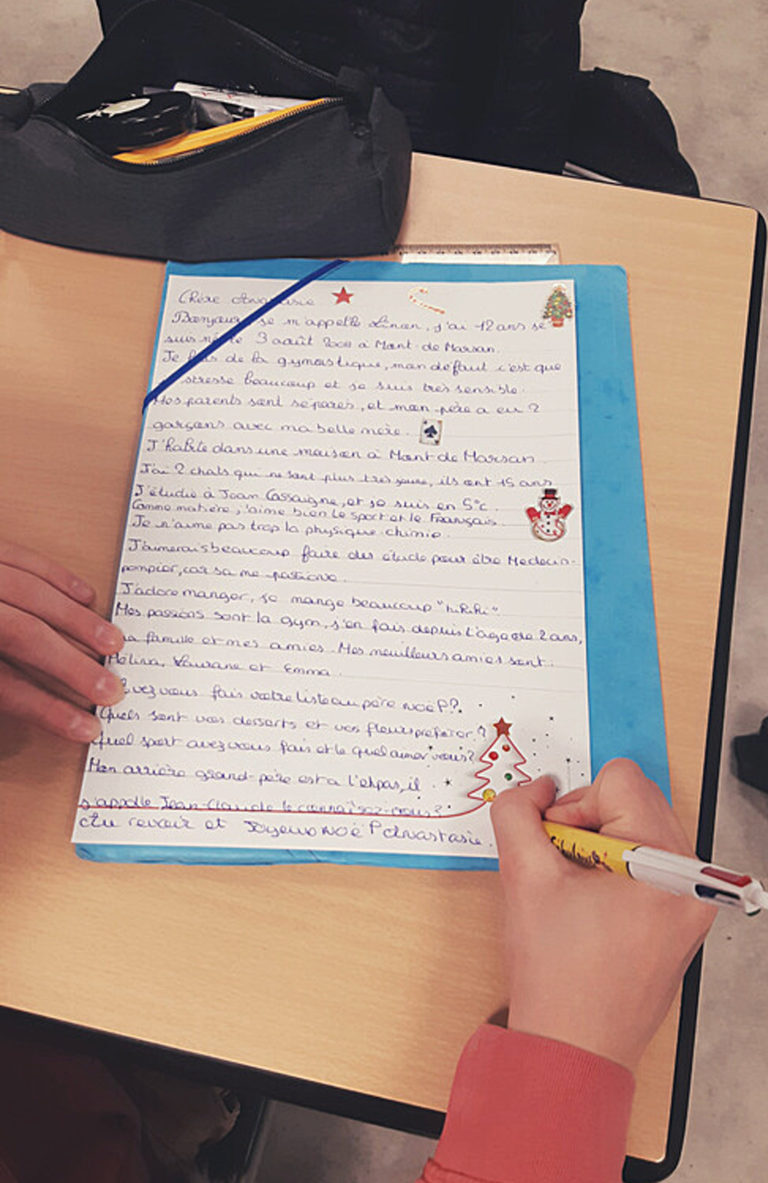 Chère Anastasie
Bonjour je m'appelle, j'ai 12 ans je
suis né le 3 août à Mont de Marsan.
Je fais de la gymastique, mon défaut c'est que
stresse beaucoup et je suis très sensible.
Mes parents sont séparés, et mon père a eu 2
garçons avec ma belle mère.
J'habite dans une maison à Mont de Marsan
J'ai 2 chats qui ne sont plus très jeune, ils ont 15 ans
J'étudie à Jean Cassaigne, et je suis en 5°c.
Comme matière, j'aime bien le sport et le Français.
Je n'aime pas trop la physique-chimie.
J'aimerais beaucoup faire des étude pour être Medecin-
pompier, car sa me passione.
J'adore manger, je mange beaucoup
Mes passions sont la gym, j'en fais depuis l'age de 2 ans,
ma famille et mes amies. Mes meuilleurs amies sont:
Mélina, Laurane et Emma.
Avez vous fais votre liste au père noël?
Quels sont vos desserts et vos fleurs préférer?
Quel sport avez vous fais et le quel aimer vous?
Mon arrière grand-père est a l'ehpas, il
s'appelle Jean-Claude le connaissez-vous?
Au revoir et Joyeux noël Anastasie.